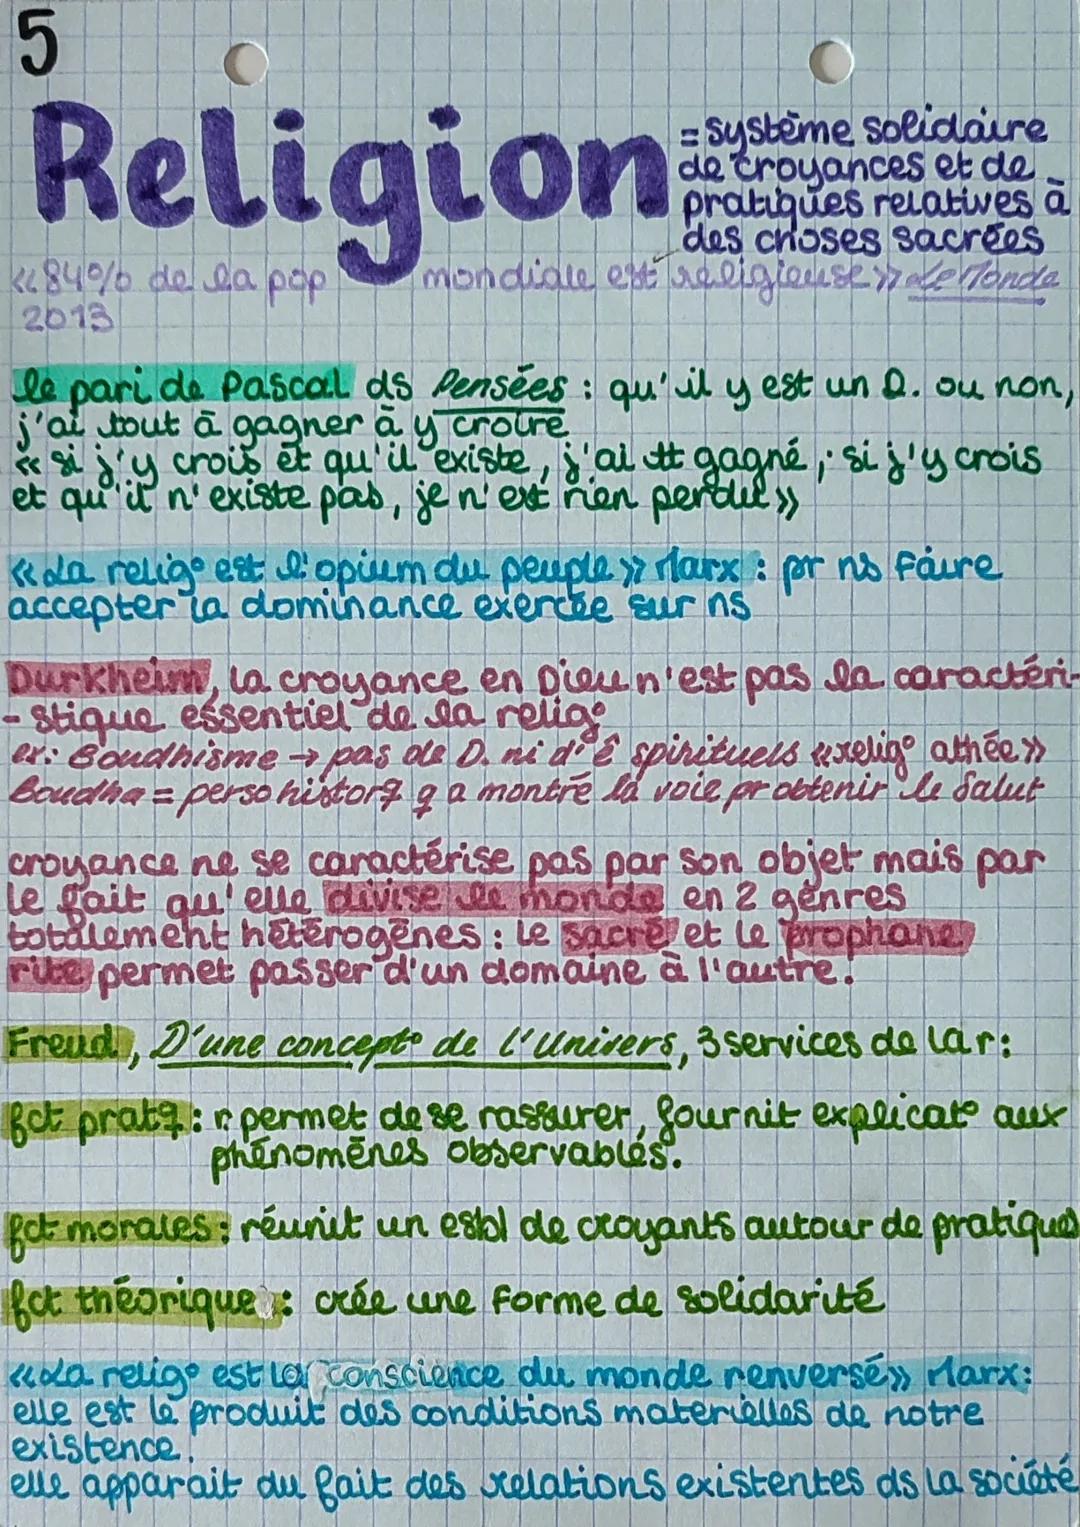 5
Religion
= système solidaire
de croyances et de
pratiques relatives à
des choses sacrées
«84% de la pop mondiale est religieuse» Le Monde
2013
le pari de Pascal ds Pensées : qu'il y est un D. ou non,
j'ai tout à gagner à y croire
« si j'y crois et qu'il existe, j'ai tt gagné ; si j'y crois
et qu'il n'existe pas, je n'est rien perdu »
«La relig° est l'opium du peuple» Marx : pr ns faire
accepter la dominance exercée sur ns
Durkheim, la croyance en Dieu n'est pas la caractéri-
- stique essentiel de la relig°
ex: Boudhisme → pas de D. ni d'Ê spirituels «relig° athée»
Boudha = perso historq q a montré la voie pr obtenir le Salut
croyance ne se caractérise pas par son objet mais par
le fait qu'elle divise le monde en 2 genres
totalement hétérogènes : le sacré et le prophane
rite permet passer d'un domaine à l'autre.
Freud, D'une concept° de l'Univers, 3 services de la r:
fct pratq : r. permet de se rassurer, fournit explicat° aux
phénomènes observables.
fct morales : réunit un esbl de croyants autour de pratiques
fct théorique : crée une forme de solidarité
«La relig° est la conscience du monde renversé» Marx:
elle est le produit des conditions matérielles de notre
existence.
elle apparait du fait des relations existentes ds la société